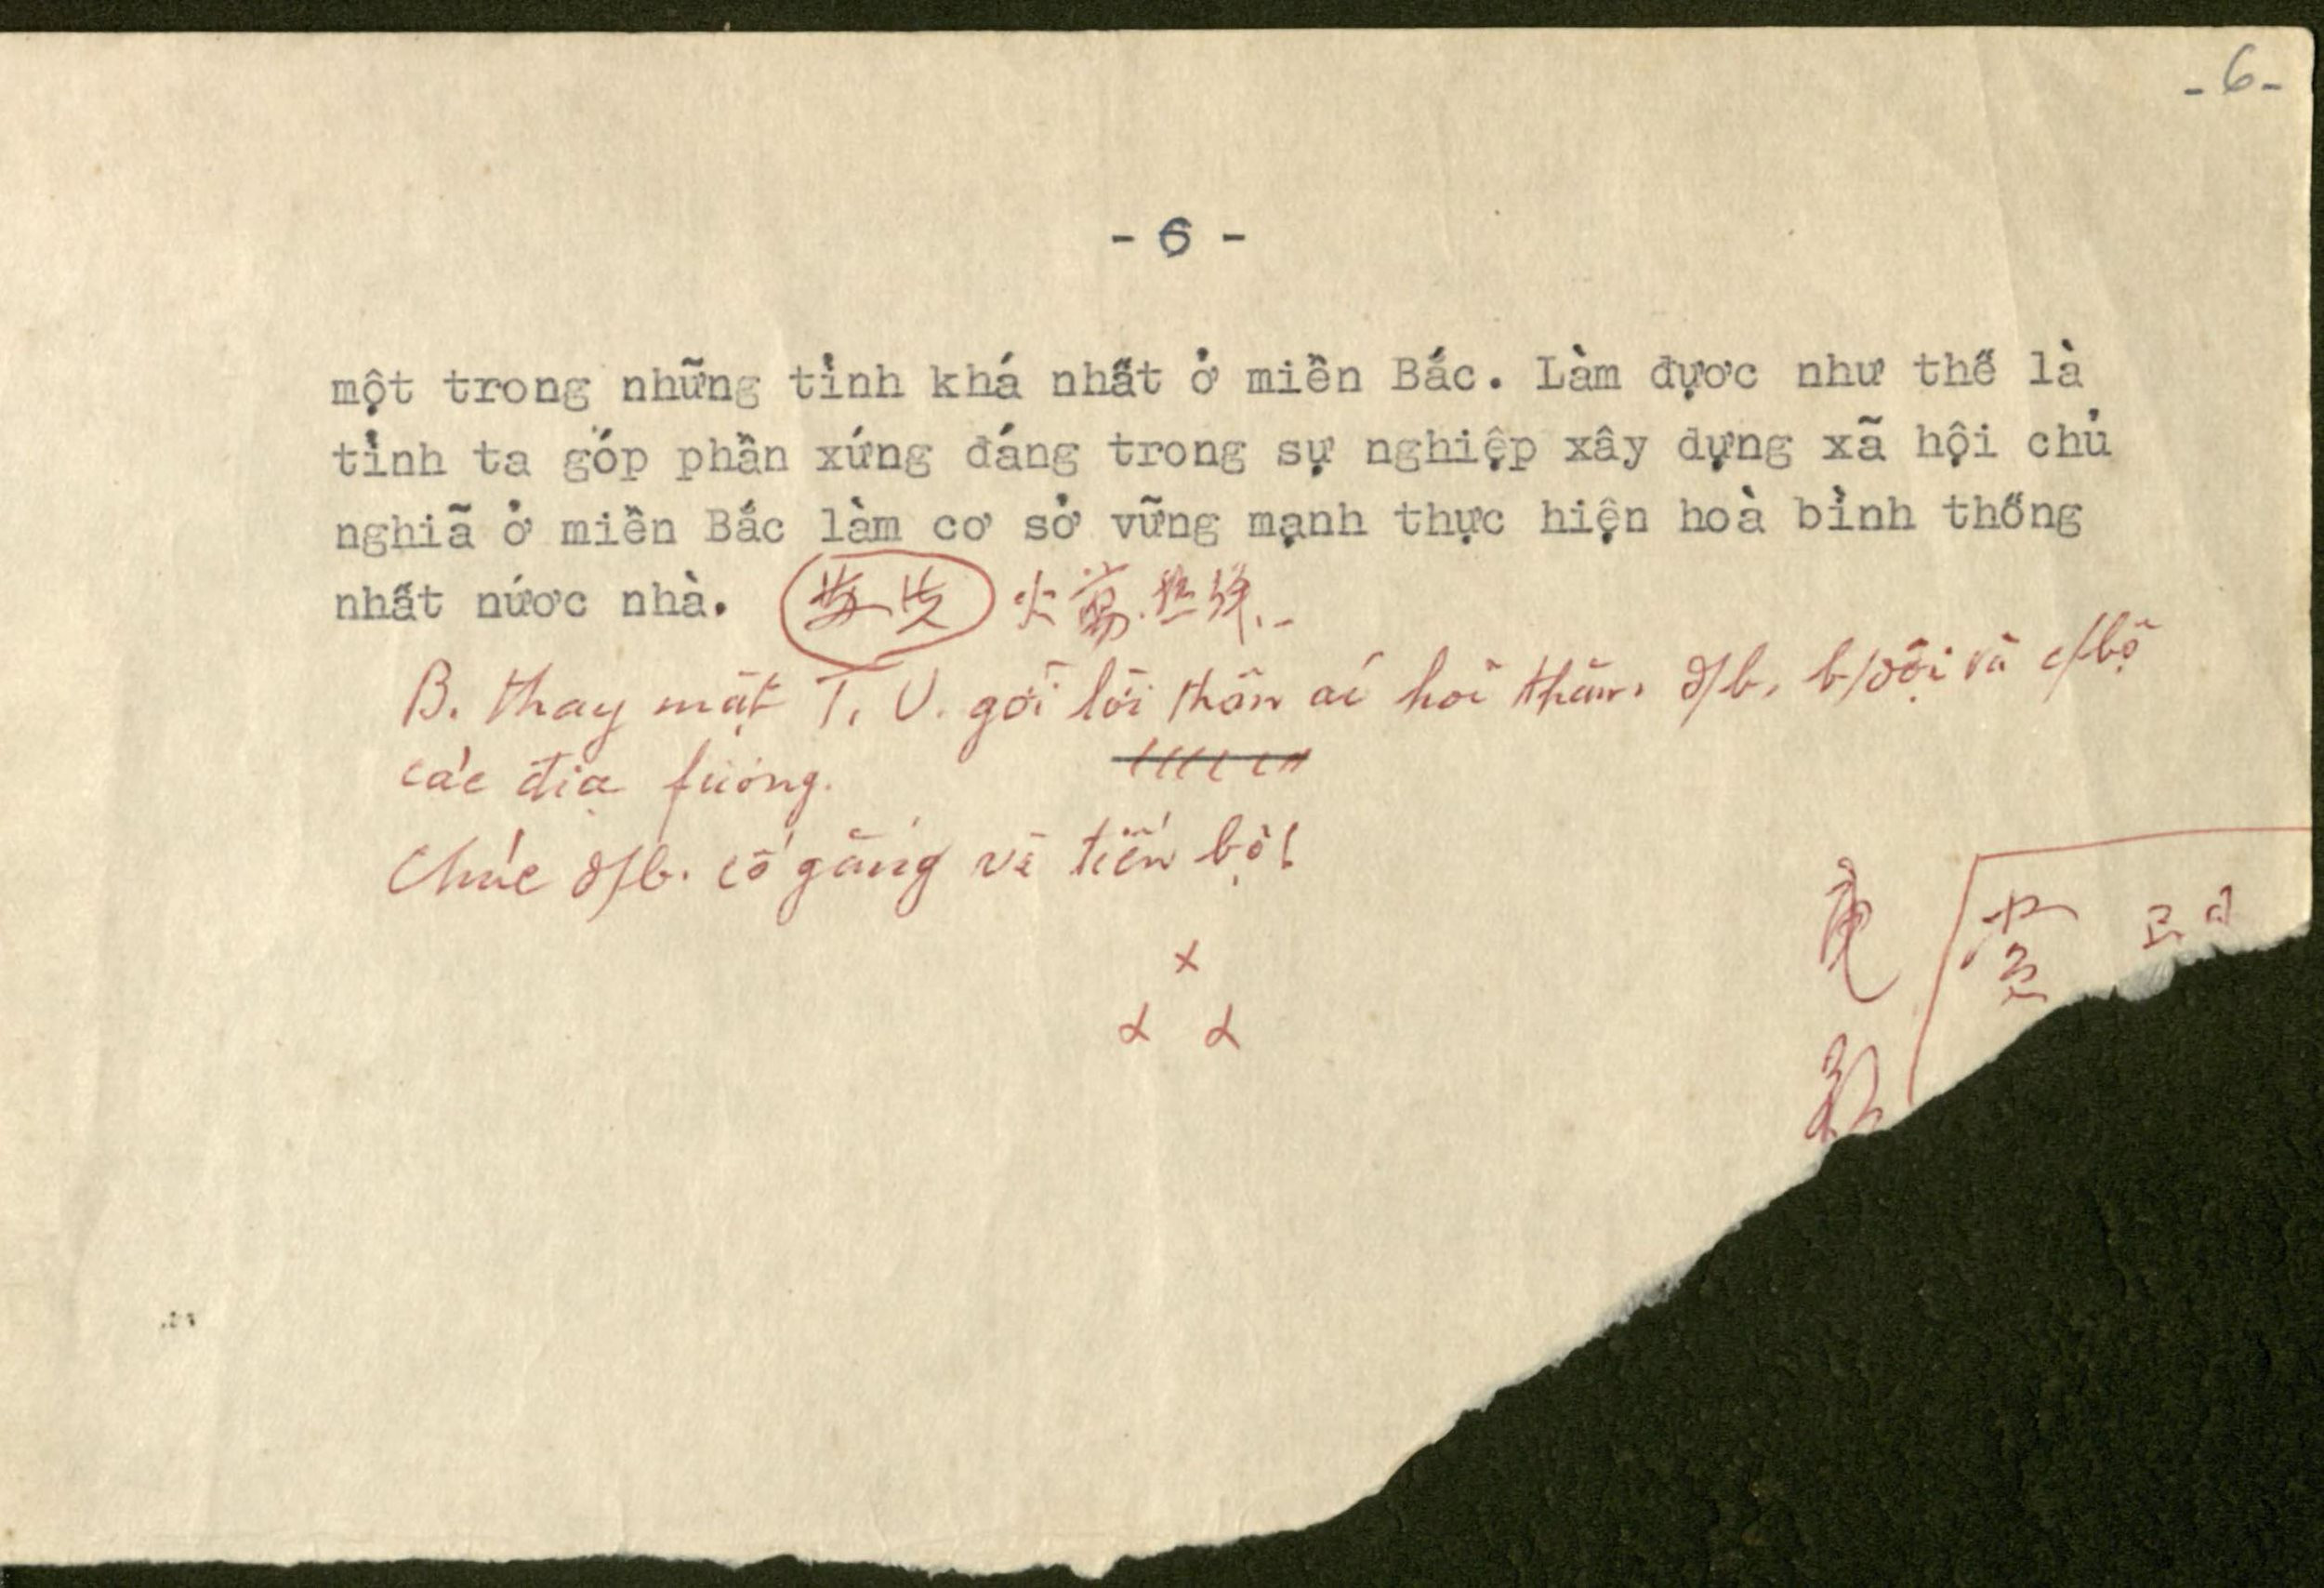 - 6 -
- 6 -
một trong những tỉnh khá nhất ở miền Bắc. Làm được như thế là
tỉnh ta góp phần xứng đáng trong sự nghiệp xây dựng xã hội chủ
nghiã ở miền Bắc làm cơ sở vững mạnh thực hiện hoà bình thống
nhất nước nhà.
B. thay mặt T. U. gởi lời thân ái hỏi thăm đ/b, b/đội và c/bộ
các địa fương.
Chúc đ/b. cố gắng và tiến bộ!
x
x x